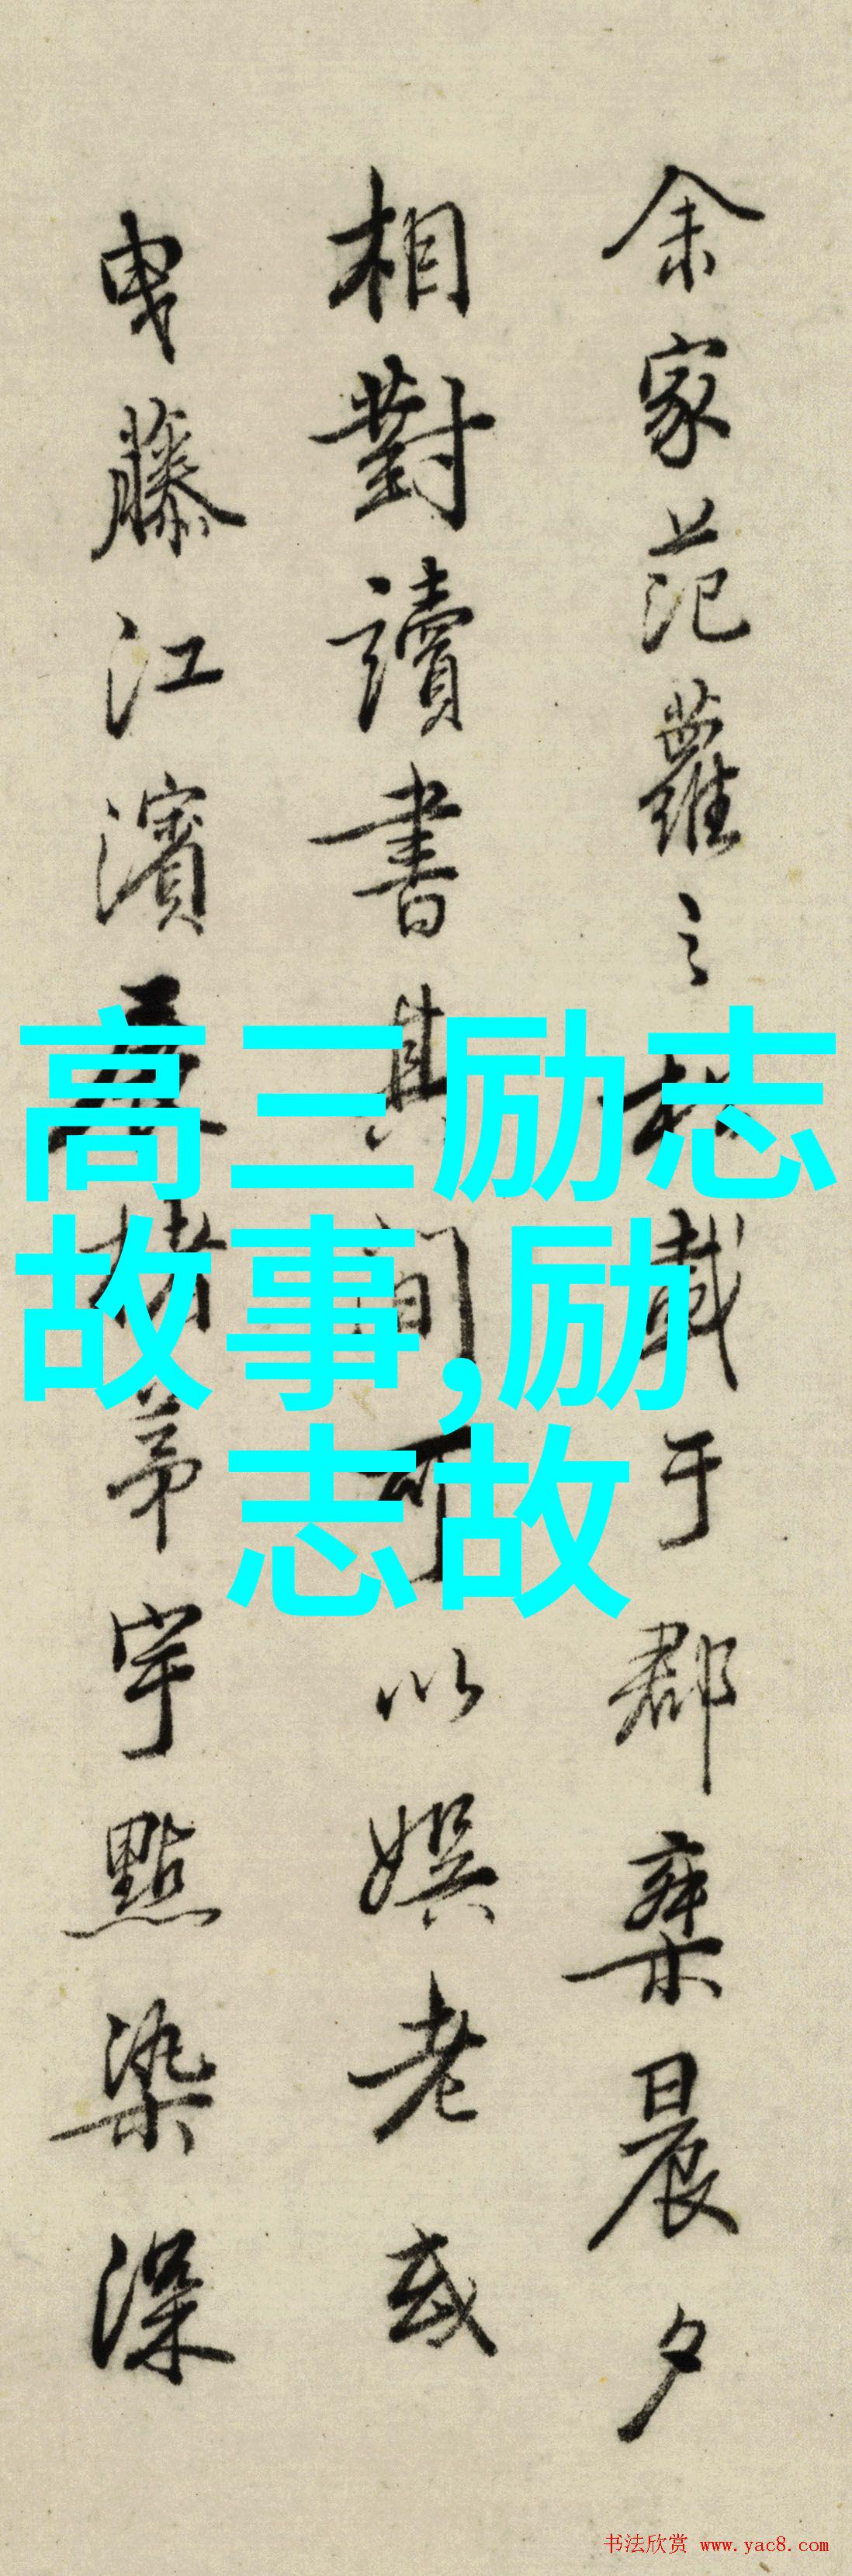 余家范蘿之松載于郡乘晨夕
相對讀書其間可以娛老或
曳藤江濱茅宇點染深
高三励志
故事,励
志故
书法欣赏 www.yac8.com